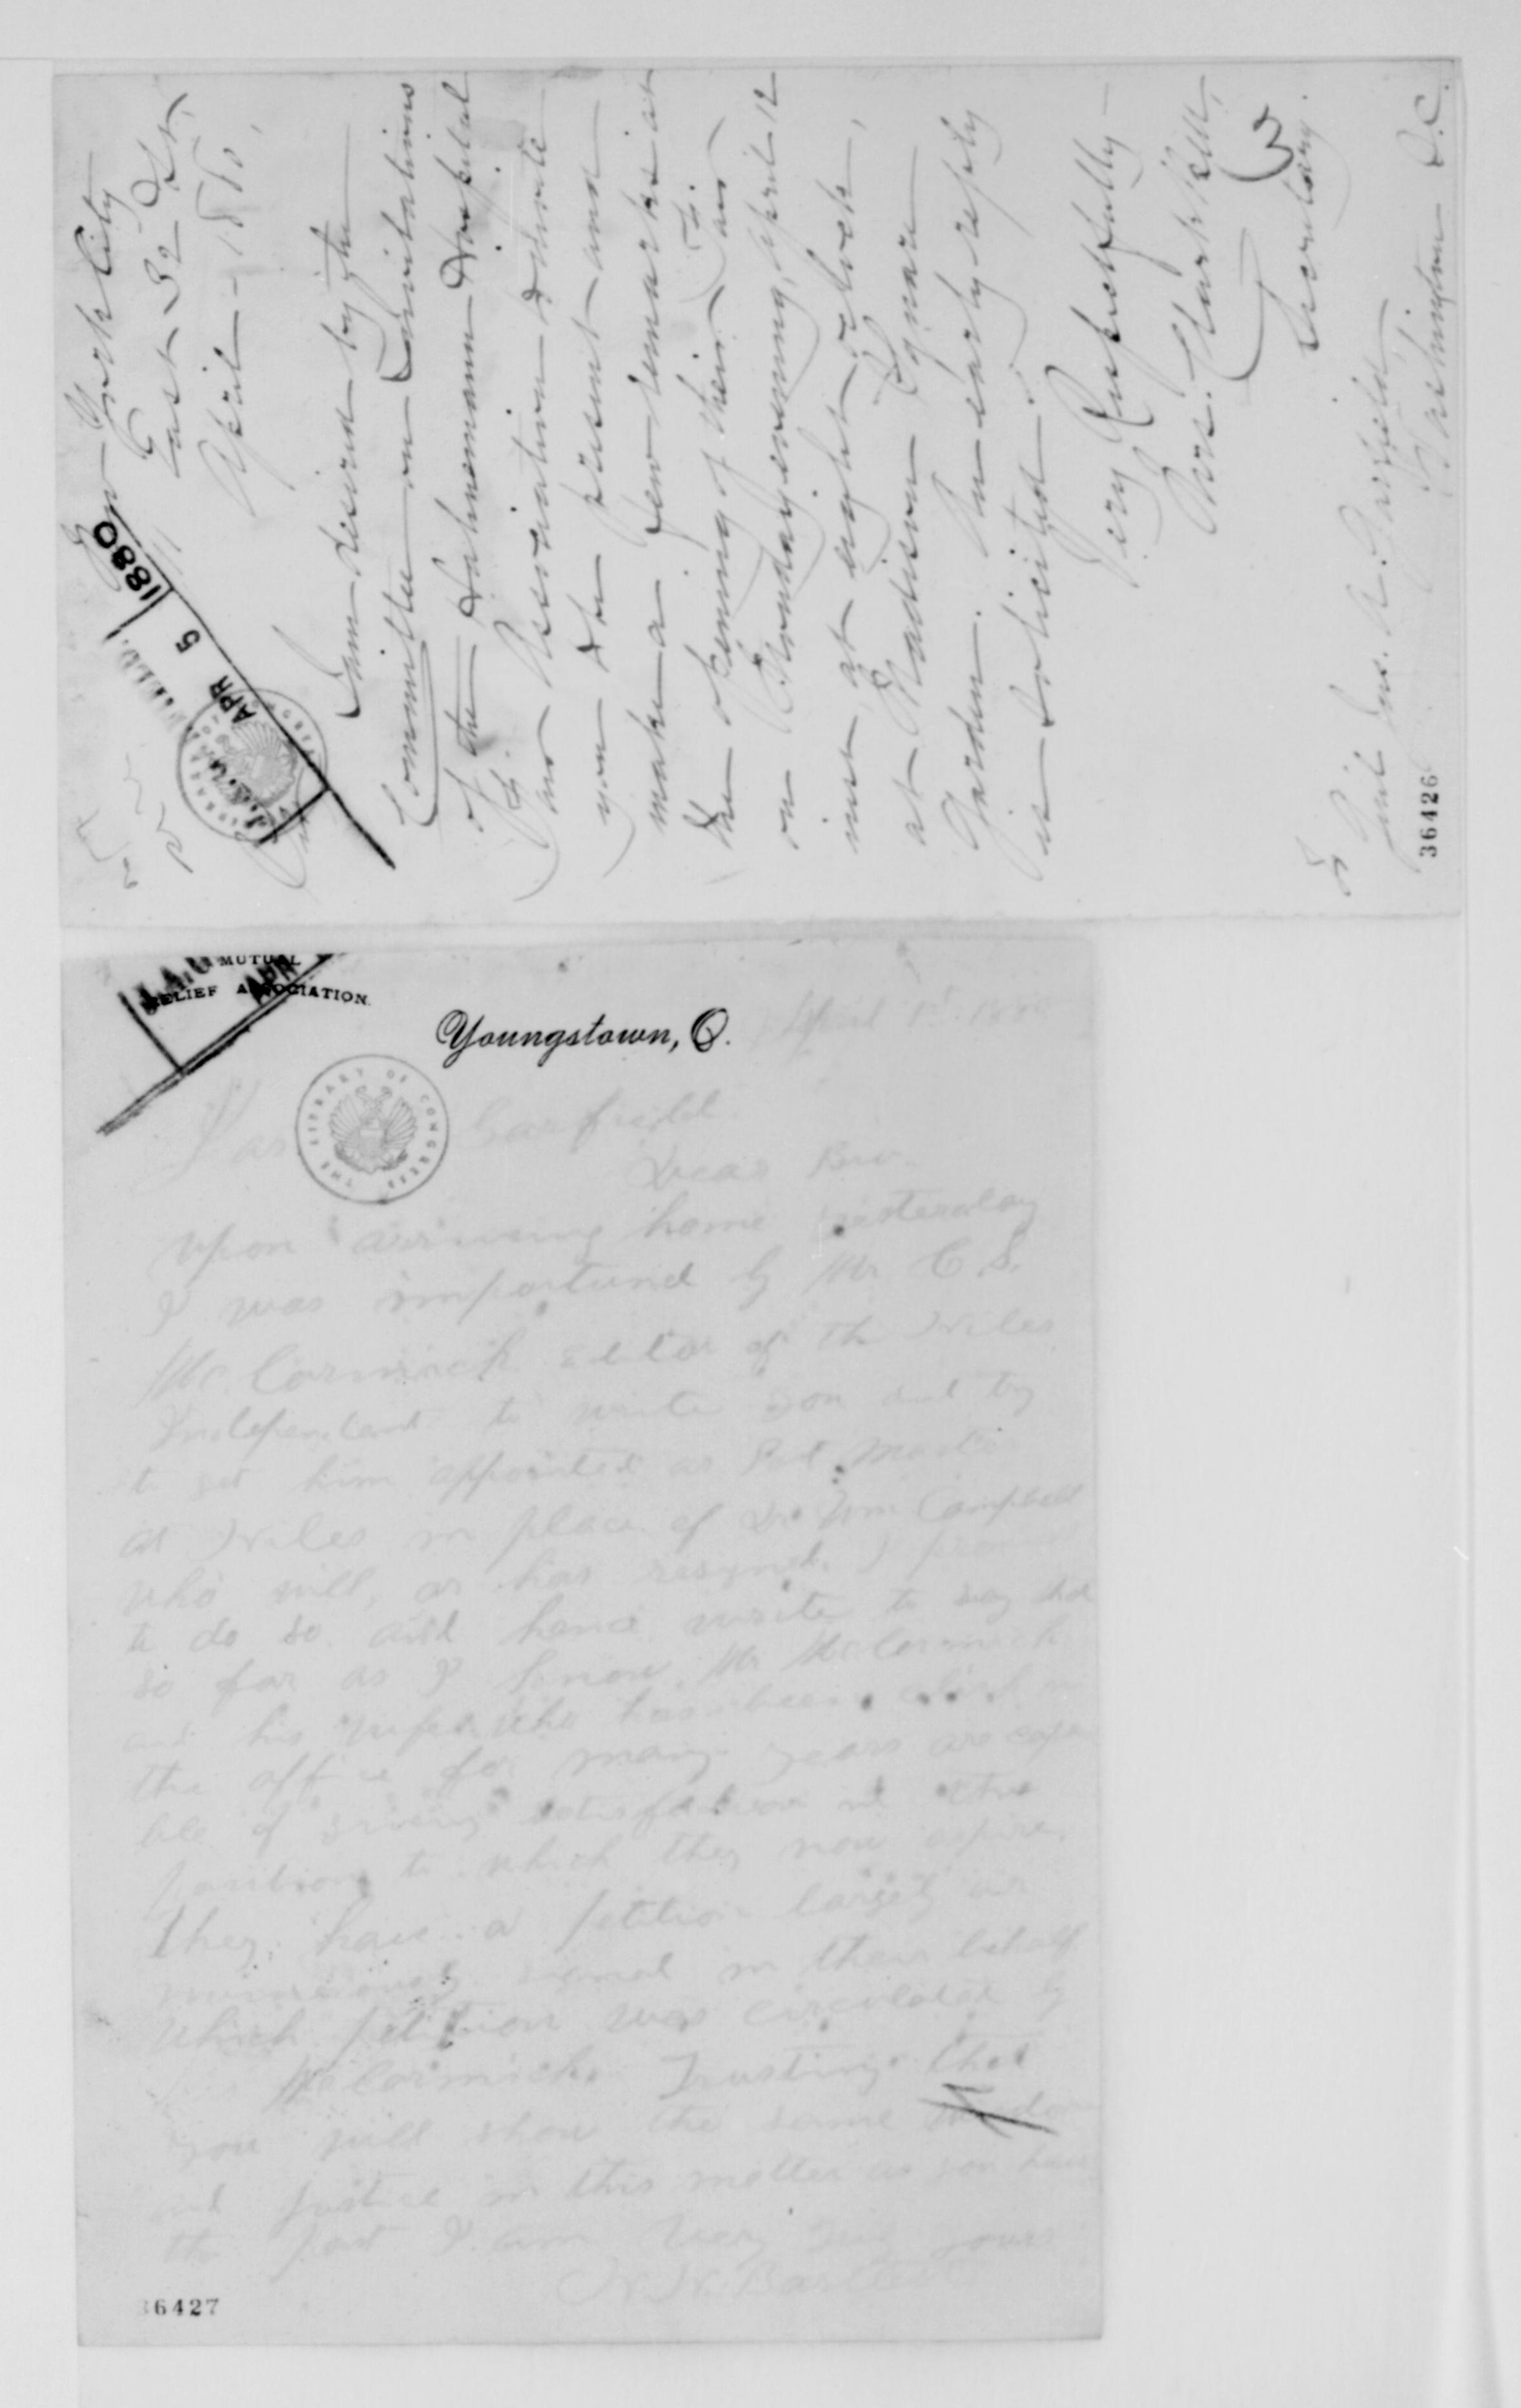 York City
6 East 52 St.
April - 1880,
J.A.G. REC'D.
APR 5 1880
I am desired by the
Committee on Invitations
of the Hahnemann Hospital
Association to invite
you to be present and
make a few remarks at
the opening of their Fair
on Monday evening, April 12
inst, at eight o'clock,
at Madison Square
Garden. An early reply
is solicited.
Very Respectfully
Mrs. Clark Bell,
Secretary.
3
To
Genl Jas. A. Garfield
Washington D.C.
36426
MUTUAL
RELIEF ASSOCIATION.
APR
Youngstown, O. April 1st 1880
THE LIBRARY OF CONGRESS
Jas Garfield
Dear Bro.
Upon arriving home yesterday
I was importuned by Mr C. S.
McCormick Editor of the Niles
Independant to write you and try
to get him appointed as Post Master
at Niles in place of Dr Wm Campbell
who will, or has resigned. I promised
to do so and hence write to say that
so far as I know, Mr McCormick
and his wife who has been clerk in
the office for many years are capa
ble of giving satisfaction in the
position to which they now aspire.
They have a petition largely and
numerously signed in their behalf
which petition was circulated by
McCormick. Trusting that
you will show the same wisdom
and justice in this matter as you have
the past I am Very Truly yours
36427